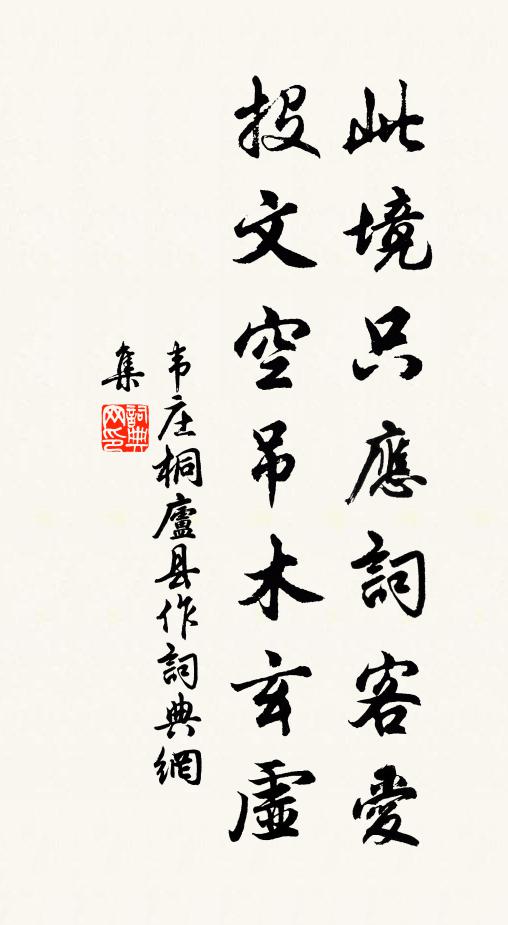 此境只應詞客愛
投文空吊木玄虛
韦庄桐廬县作詞典網
集
詞典网印